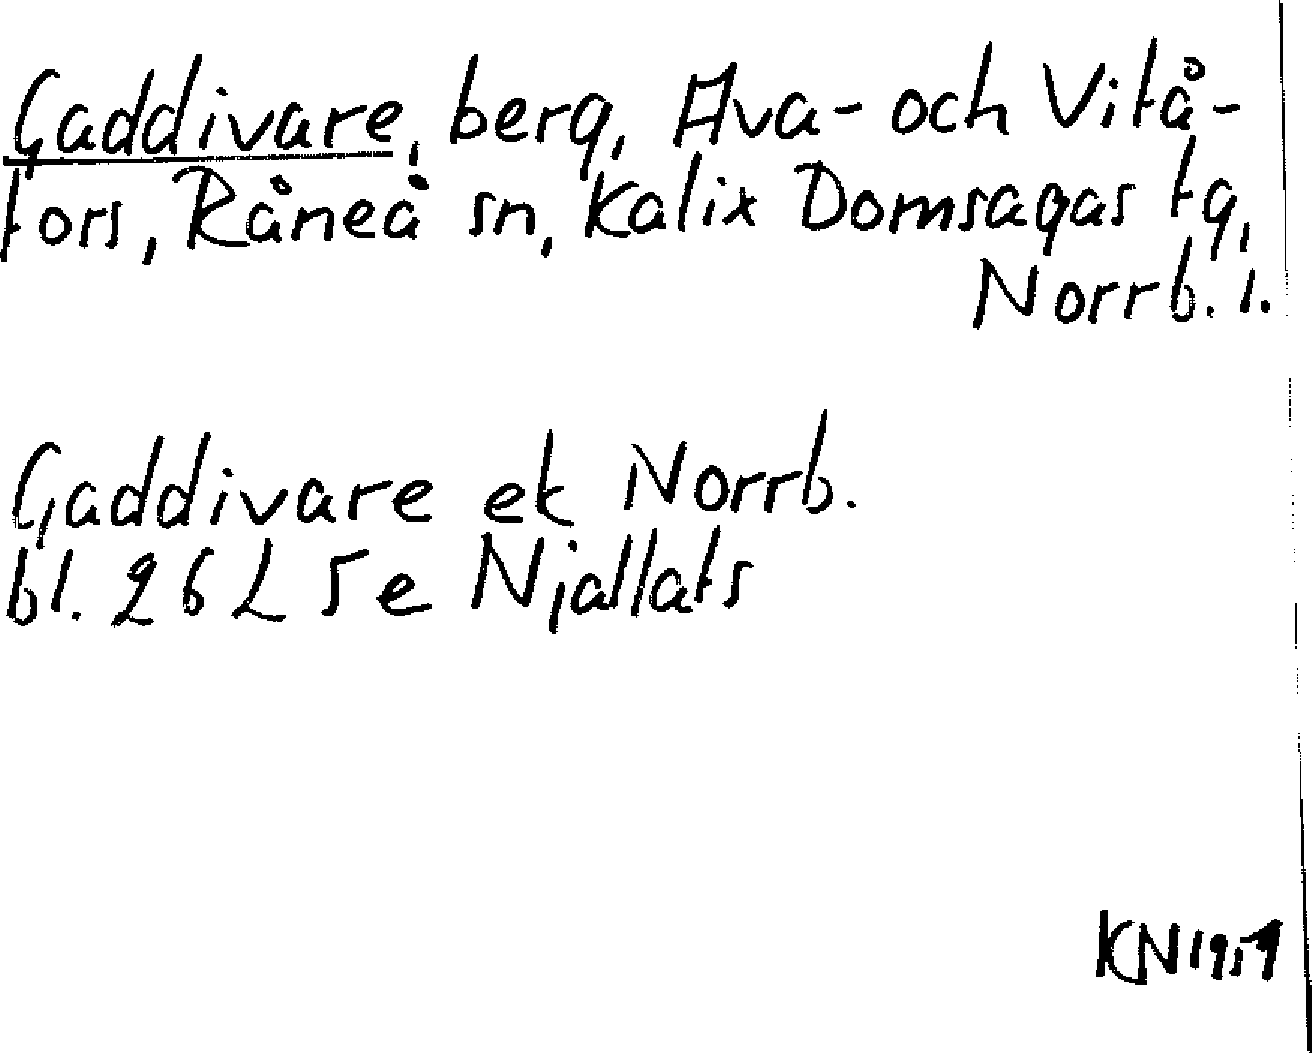 Gaddivare, berg, Ava- och Vitå-
fors, Råneå sn, Kalix Domsagas tg,
Norrb. l.
Gaddivare ek Norrb.
bl. 26 L 5e Njallats
KN